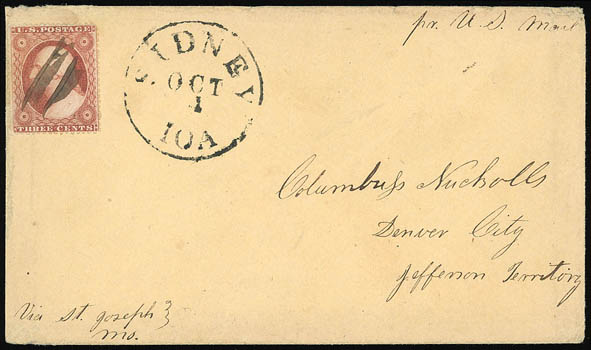 U.S. POSTAGE
THREE CENTS
SYDNEY
OCT
1
IOA
pr. U S. Mail
Columbuss Nucholls
Denver City
Jefferson Territory
Via St. Joseph
Mo.